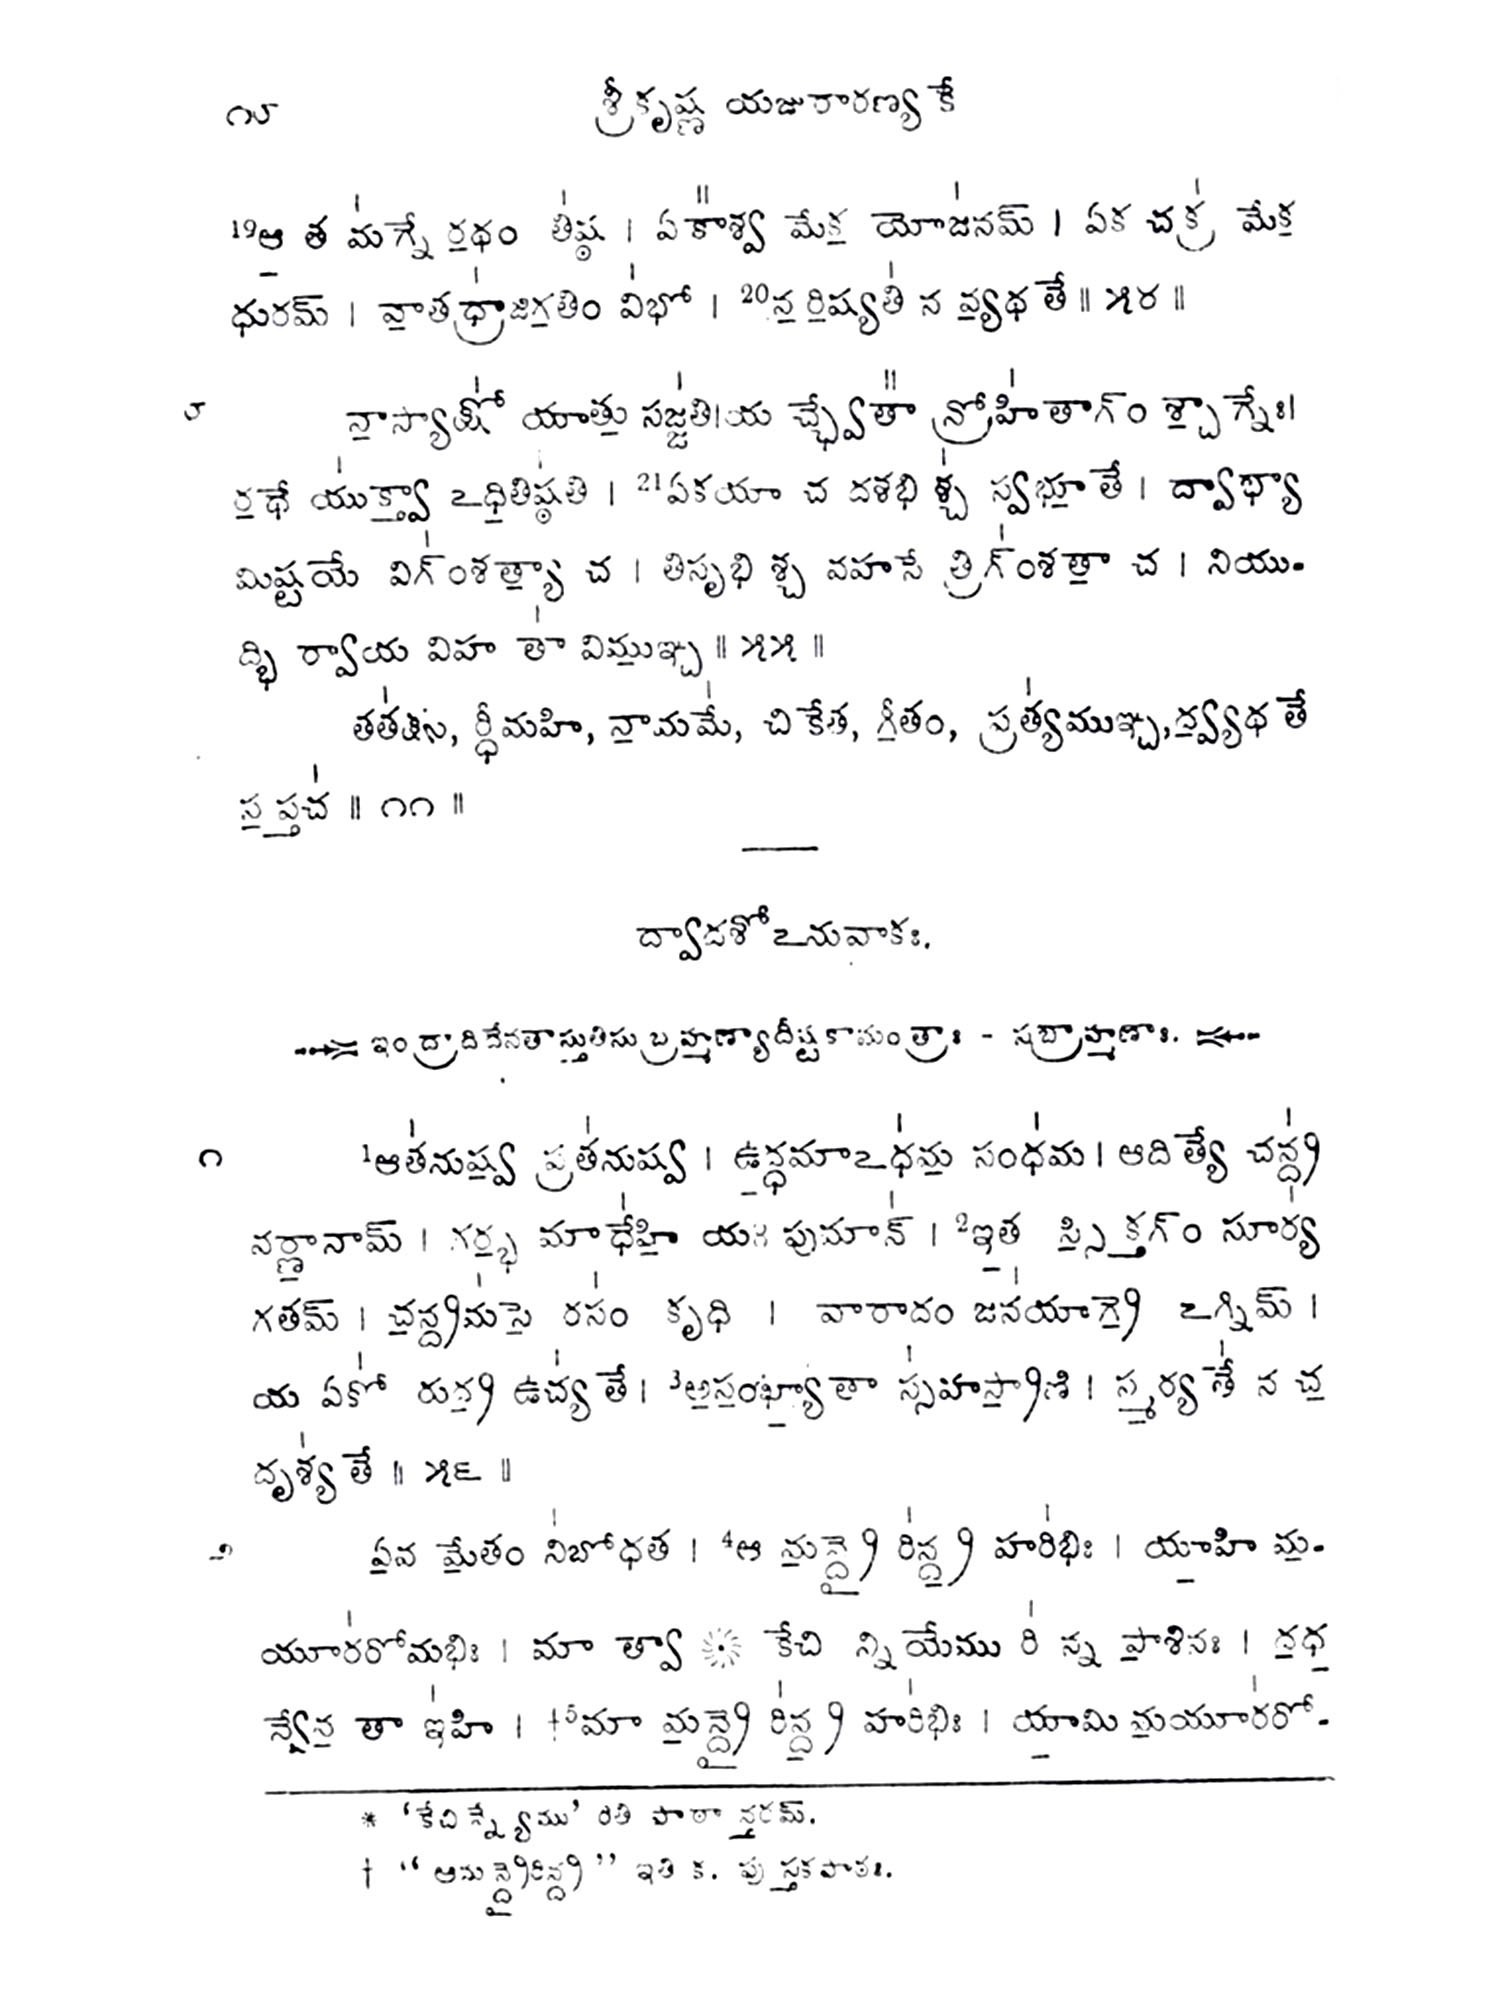 ౧౮ శ్రీకృష్ణ యజురారణ్యకే
19ఆ॒ త మ॑గ్నే ర॒థం తి॑ష్ఠ । ఏకా᳚శ్వ మేక॒ యోజ॑నమ్ । ఏక చక్ర॑ మేక॒
ధురమ్ । వా॒తధ్రా॑జిగ॒తిం వి॑భో । 20న॒ రి॒ష్యతి॑ న వ్య॒థతే ॥ ౫౪ ॥
౮ నా॒స్యాక్షో॑ యాతు॒ సజ్జ॑తి।య చ్ఛ్వేతా᳚ న్రోహి॑తాగ్ం శ్చా॒గ్నేః।
ర॒థే యు॑క్త్వా॒ ఽధి॒తిష్ఠ॑తి । 21ఏకయా చ దశభి శ్చ॑ స్వభూ॒తే । ద్వాభ్యా
మిష్టయే విగ్ం॑శత్యా॒ చ । తిసృభి శ్చ వహసే త్రిగ్ం॑శతా॒ చ । నియు-
ద్భి ర్వాయ విహ తా॑ విము॒ఞ్చ ॥ ౫౫ ॥
తత॑క్షు, ర్ధీమహి, నా॒మమే॑, చి కేత॒, గీ॒తం, ప్రత్య॑ముఞ్చ,ద్వ్య॒థతే
స॒ప్తచ॑ ॥ ౧౧ ॥
ద్వాదశోఽనువాకః.
ఇంద్రాదిదేవతాస్తుతిసుబ్రహ్మణ్యాదీష్టకామంత్రాః - సబ్రాహ్మణాః.
౧ 1ఆత॑నుష్వ॒ ప్రత॑నుష్వ । ఉ॒ద్ధమాఽధ॑మ॒ సంధ॑మ । ఆదిత్యే చన్ద్ర॑
వర్ణా॒నామ్ । గర్భ॒ మాధే॑హి॒ యః పుమా॑న్ । 2ఇ॒త స్సి॒క్తగ్ం సూర్య॑
గతమ్ । చ॒న్ద్రమ॑సే॒ రసం॑ కృధి । వారాదం జన॑యాగ్రే॒ ఽగ్నిమ్ ।
య ఏకో॑ రుద్ర॒ ఉచ్య॑తే । 3అ॒సం॒ఖ్యా॒తా స్స॑హస్రా॒ణి । స్మ॒ర్యతే॑ న చ॒
దృశ్య॑తే ॥ ౫౬ ॥
౨ ఏ॒వ మే॒తం ని॑బోధత । 4ఆ మ॒న్ద్రై రి॑న్ద్ర॒ హరి॑భిః । యా॒హి మ॒-
యూర॑రోమభిః । మా త్వా కేచి న్నియేము రి॑ న్న పా॒శినః । ద॒ధ॒
న్వేవ॒ తా ఇ॑హి । †5మా మ॒న్ద్రై రి॑న్ద్ర॒ హరి॑భిః । యా॒మి మ॒యూర॑రో-
* ‘కేచి న్న్యేము’ రితి పాఠా న్తరమ్.
† “ఆమ న్ద్రైరిన్ద్ర” ఇతి క. పుస్తకపాఠః.